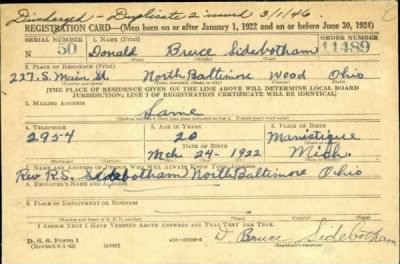 Discharged - Duplicate 2 issued 3/1/46
REGISTRATION CARD—(Men born on or after January 1, 1922 and on or before June 30, 1924)
SERIAL NUMBER 1. NAME (Print) ORDER NUMBER
N 50 Donald Bruce Sidebotham 11489
2. PLACE OF RESIDENCE (Print)
227 S. Main St. North Baltimore Wood Ohio
[THE PLACE OF RESIDENCE GIVEN ON THE LINE ABOVE WILL DETERMINE LOCAL BOARD
JURISDICTION; LINE 2 OF REGISTRATION CERTIFICATE WILL BE IDENTICAL]
3. MAILING ADDRESS
Same
4. TELEPHONE 5. AGE IN YEARS 6. PLACE OF BIRTH
295-4 20 Manistique
DATE OF BIRTH
Mch. 24 - 1922 Mich.
7. NAME AND ADDRESS OF PERSON WHO WILL ALWAYS KNOW YOUR ADDRESS
Rev R.S. Sidebotham North Baltimore Ohio
8. EMPLOYER'S NAME AND ADDRESS
9. PLACE OF EMPLOYMENT OR BUSINESS
I AFFIRM THAT I HAVE VERIFIED ABOVE ANSWERS AND THAT THEY ARE TRUE.
D. S. S. FORM 1
(Revised 6-9-42)
D. Bruce Sidebotham